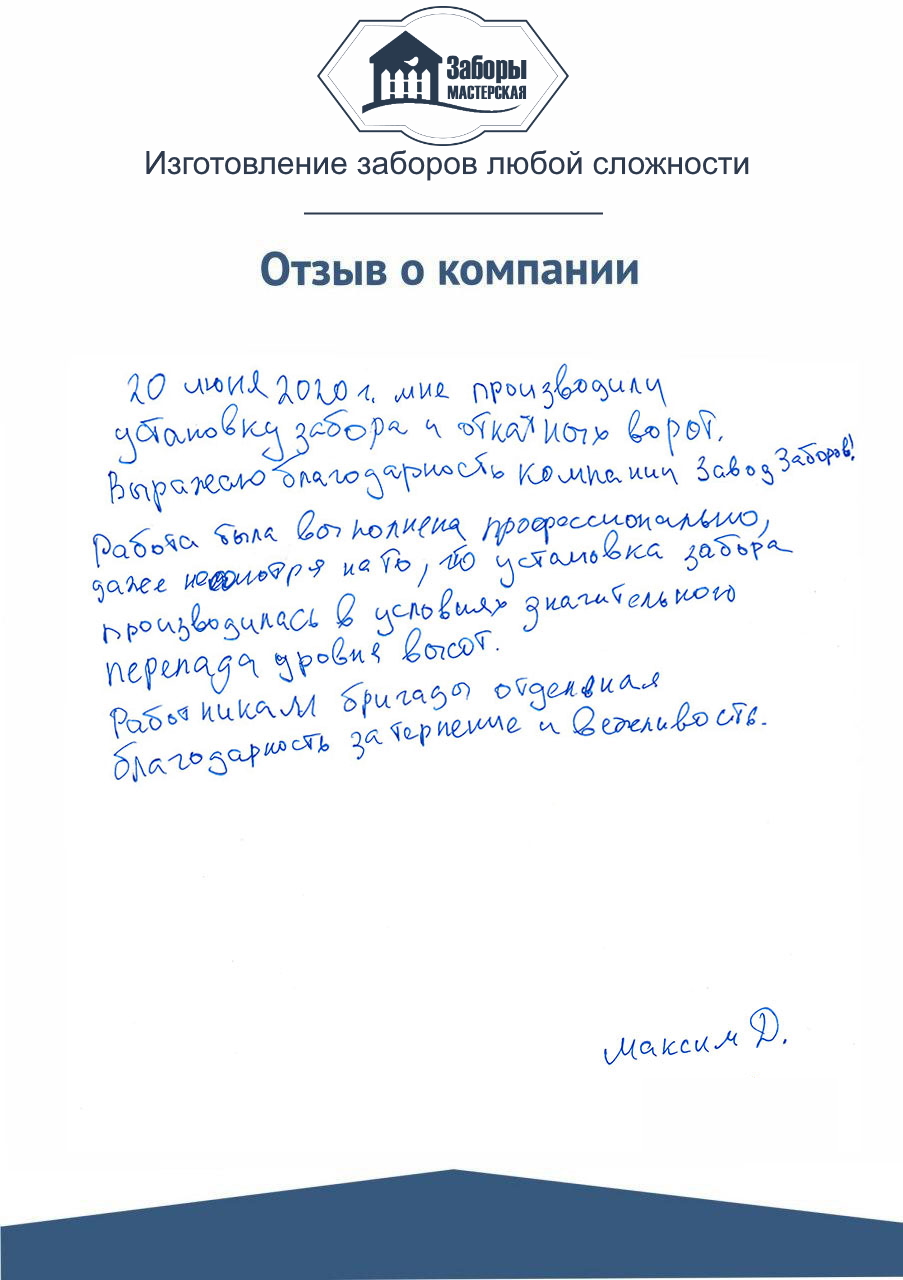 Заборы
МАСТЕРСКАЯ
Изготовление заборов любой сложности
Отзыв о компании
20 июня 2020 г. мне производили
установку забора и откатных ворот.
Выражаю благодарность компании Завод Заборов!
Работа была выполнена профессионально,
даже несмотря на то, что установка забора
производилась в условиях значительного
перепада уровня высот.
Работникам бригады отдельная
благодарность за терпение и вежливость.
Максим Д.